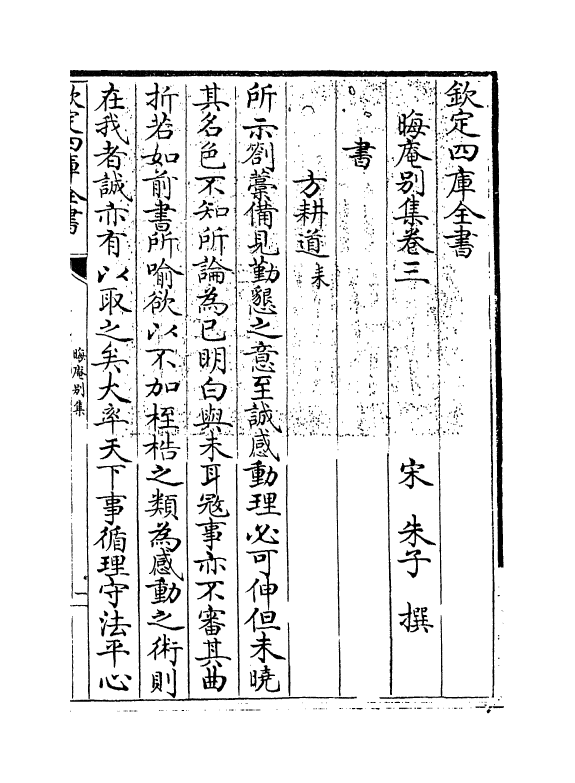 欽定四庫全書
晦庵别集卷三
宋 朱子 撰
書
方耕道耒
所示劄藁備見勤懇之意至誠感動理必可伸但未曉
其名色不知所論為已明白與未耳㓂事亦不審其曲
折若如前書所喻欲以不加桎梏之類為感動之術則
在我者誠亦有以取之矣大率天下事循理守法平心
欽定四庫全書
晦庵别集
一